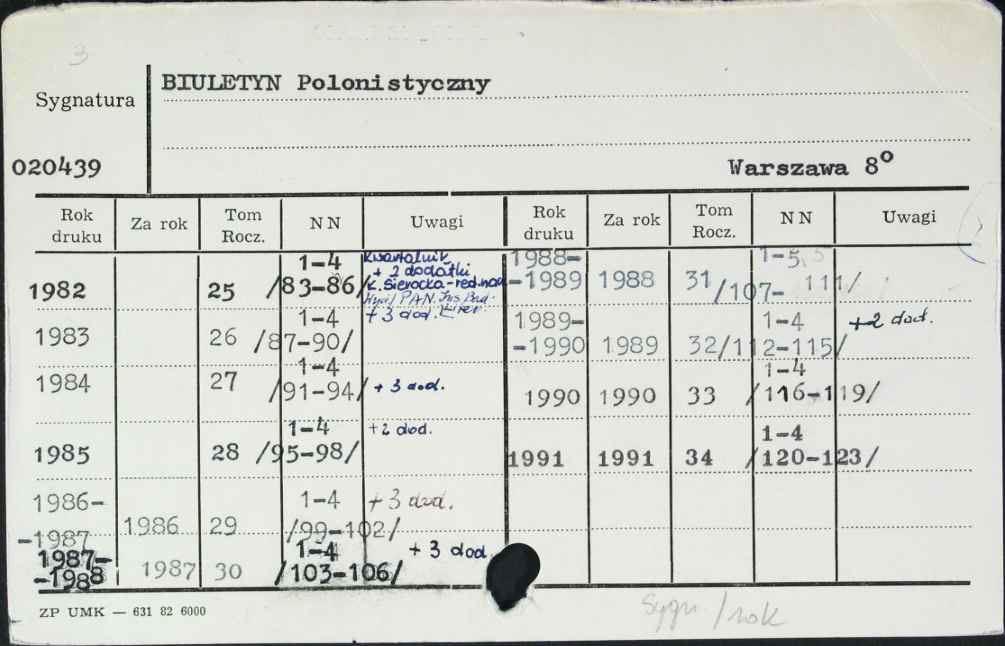 3
BIULETYN Polonistyczny
Sygnatura
020439
Warszawa 8°
Rok druku Za rok Tom Rocz. NN Uwagi Rok druku Za rok Tom Rocz. NN Uwagi
1982 25 1-4 /83-86/ Kwartalnik
+ 2 dodatki
K. Sierocka - red. nad.
PAN. Ins. Bad.
Liter
1983 26 1-4 /87-90/ + 3 dod.
1984 27 1-4 /91-94/ + 3 dod.
1985 28 1-4 /95-98/ +2 dod.
1986-
-1987 1986 29 1-4 /99-102/ + 3 dod.
1987-
-1988 1987 30 1-4 /103-106/ + 3 dod.
1988-
-1989 1988 31 1-5 /107- 111/
1989-
-1990 1989 32 1-4 /112-115/ +2 dod.
1990 1990 33 1-4 /116-119/
1991 1991 34 1-4 /120-123/
ZP UMK — 631 82 6000
Sygn /rok